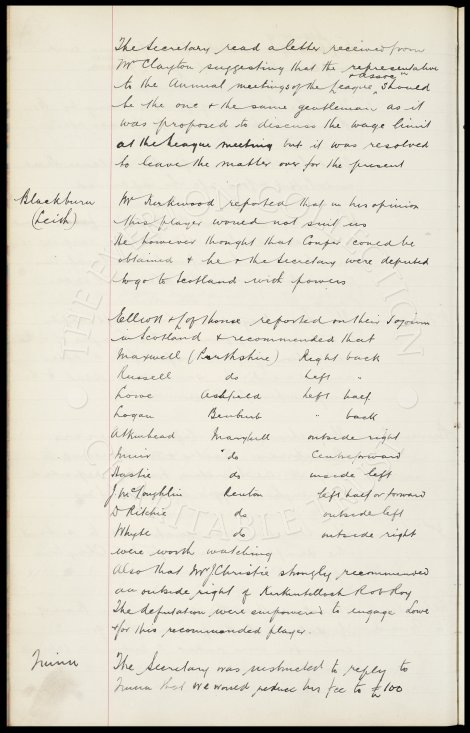 The Secretary read a letter received from
Mr Clayton suggesting that the representative
& Assocn
to the Annual meetings of the League, should
be the one & the same gentleman as it
was proposed to discuss the wage limit
at the League meeting but it was resolved
to leave the matter over for the present
Blackburn
(Leith)
Mr Kirkwood reported that in his opinion
this player would not suit us
He however thought that Couper could be
obtained & he & the Secretary were deputed
to go to Scotland with powers
Elliott & Lofthouse reported on their Sojourn
in Scotland & recommended that
Maxwell (Perthshire) Right back
Russell do left "
Lowe Ashfield left half
Logan Benburb " back
Aitkenhead Maryhill outside right
Muir do Centre forward
Hastie do inside left
J. McLoughlin Renton left half or forward
D Ritchie do outside left
Whyte do outside right
were worth watching
Also that Mr J Christie strongly recommended
an outside right of Kirkintilloch Rob Roy
The deputation were empowered to engage Lowe
&/or this recommended player
The Secretary was instructed to reply to
that we would reduce his fee to £100
THE ENGLISH NATION
CHARITABLE